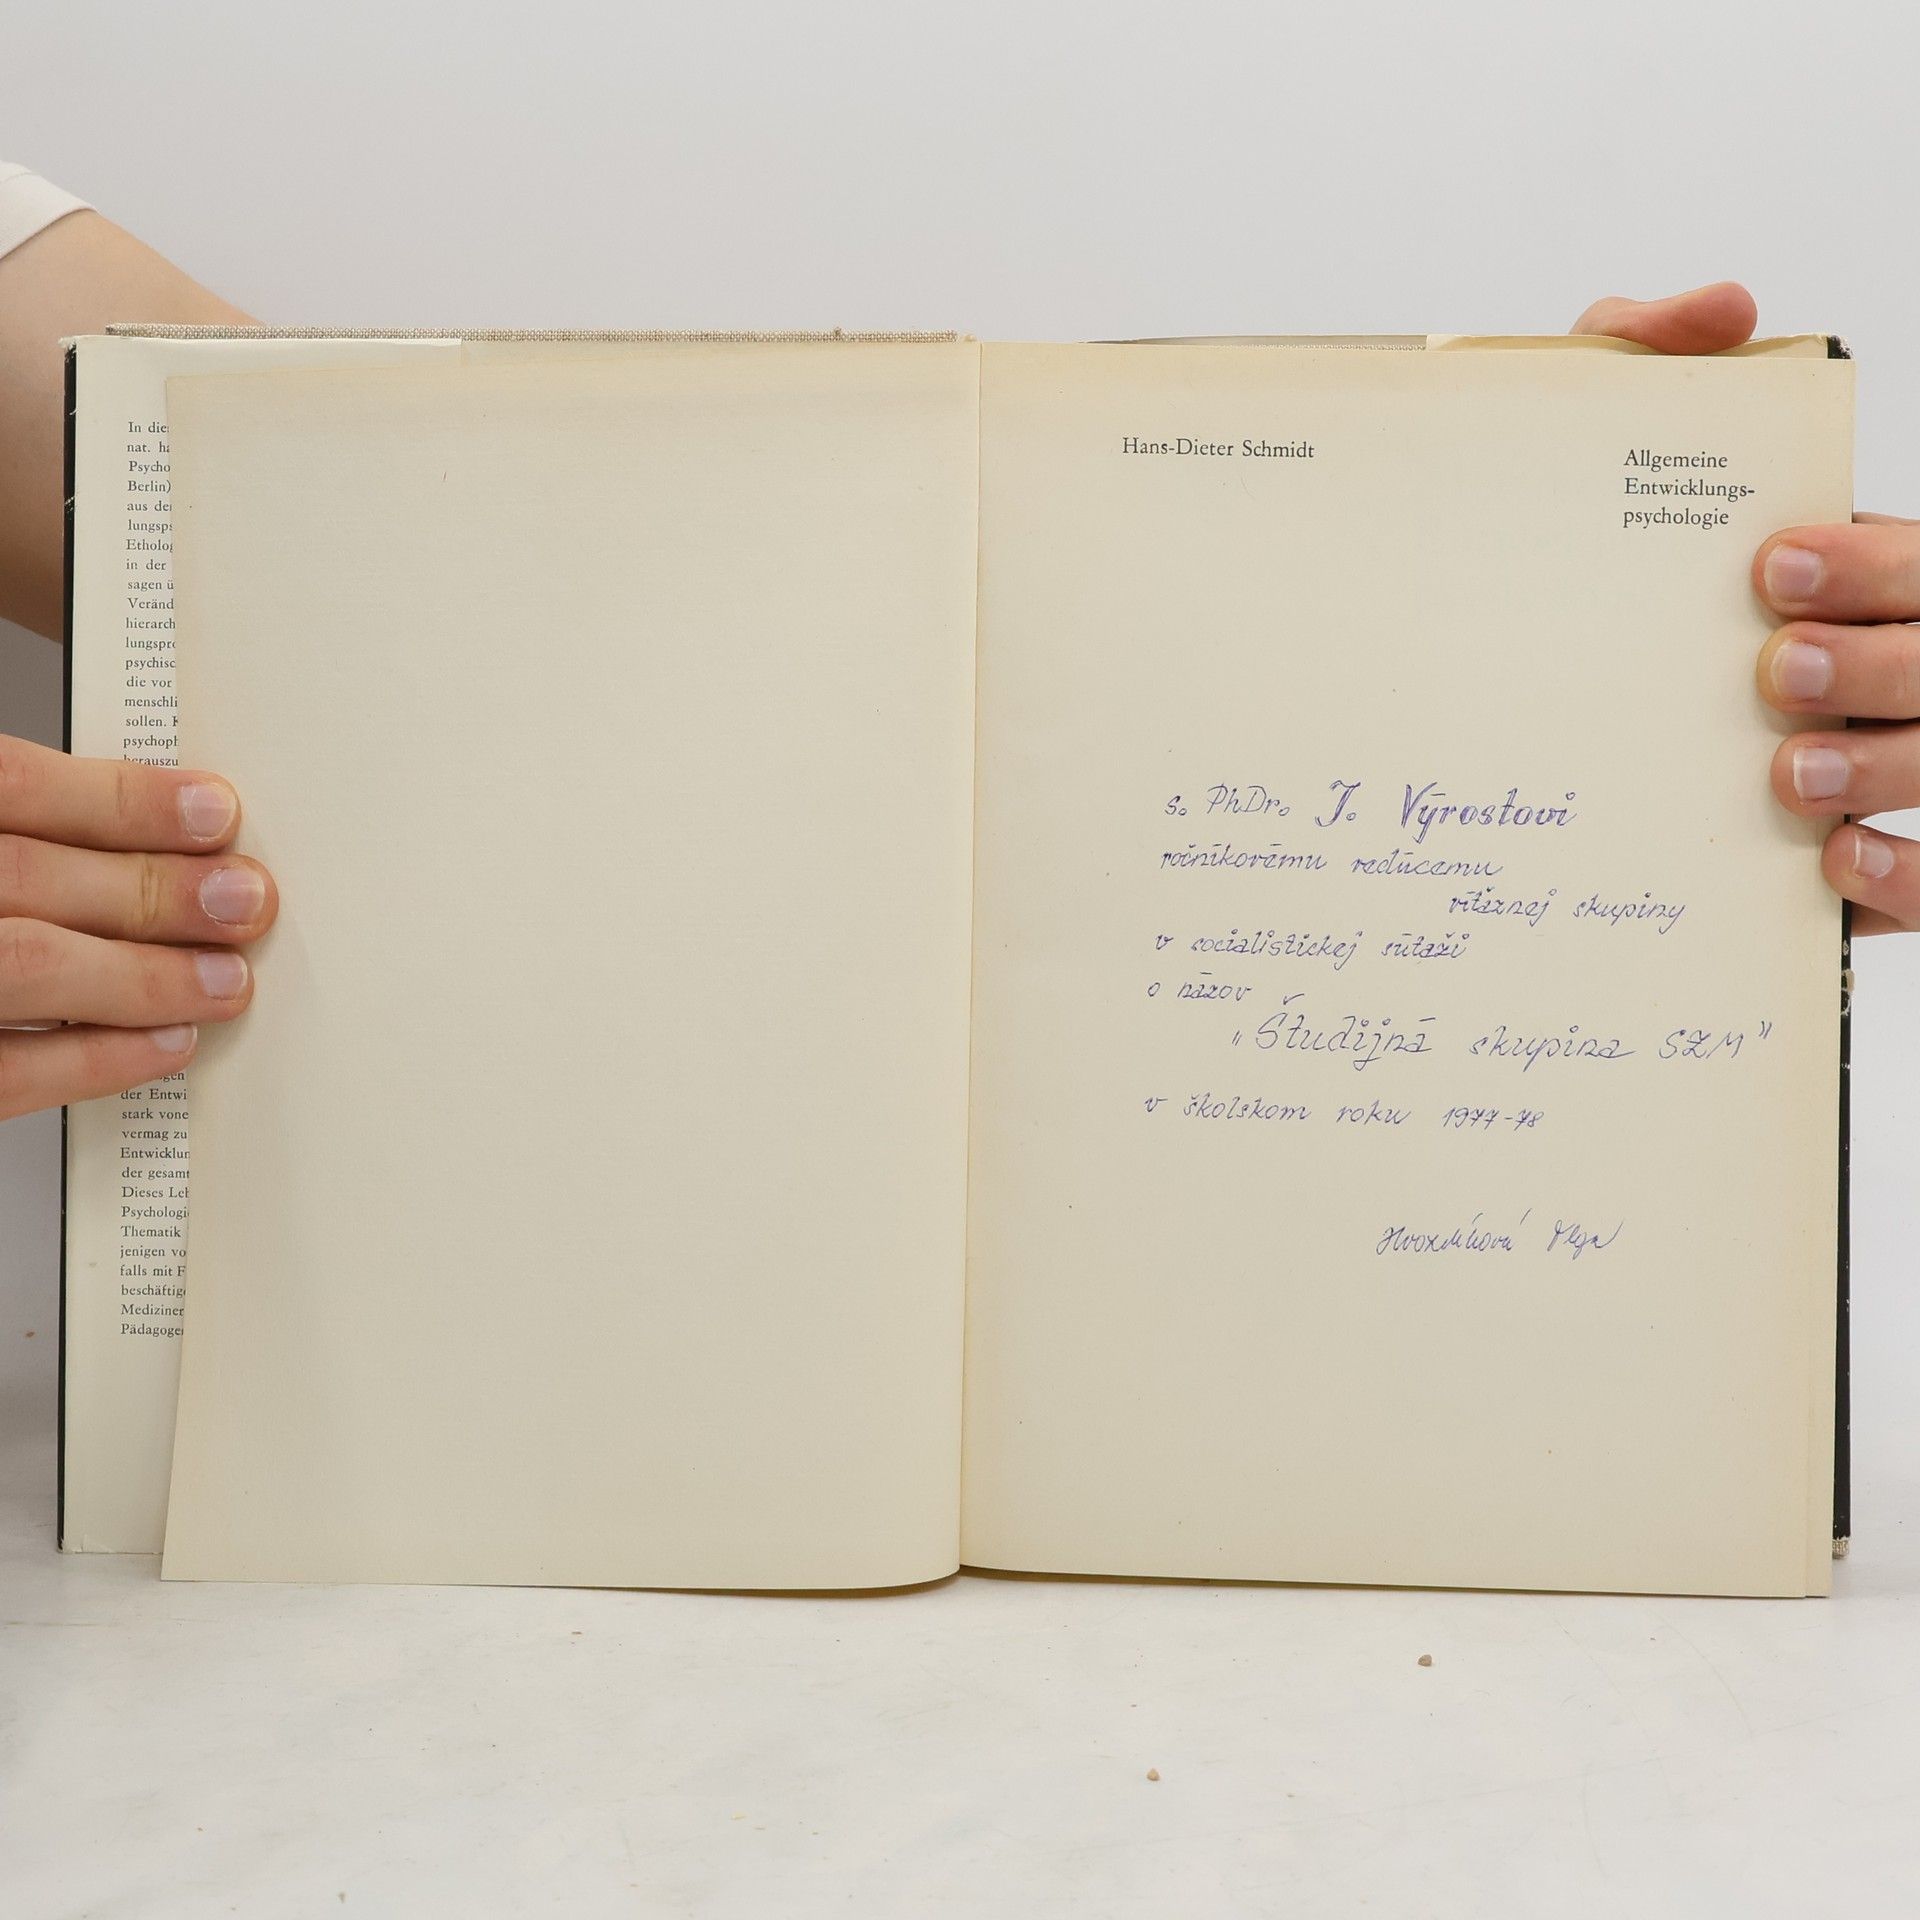 In die
nat. ha
Psycho
Berlin)
aus de
lungsps
Etholog
in der
sagen ü
Veränd
hierarch
lungspro
psychisc
die vor
menschli
sollen. K
psychoph
herauszu
gen
der Entwi
stark vone
vermag zu
Entwicklun
der gesamt
Dieses Leh
Psychologi
Thematik
jenigen vo
falls mit F
beschäftige
Mediziner
Pädagoge
Hans-Dieter Schmidt
Allgemeine
Entwicklungs-
psychologie
s. PhDr. J. Výrostovi
ročníkovému vedúcemu
víťaznej skupiny
v socialistickej súťaži
o názov
"Študijná skupina SZM"
v školskom roku 1977-78
Hvozdíková Oľga